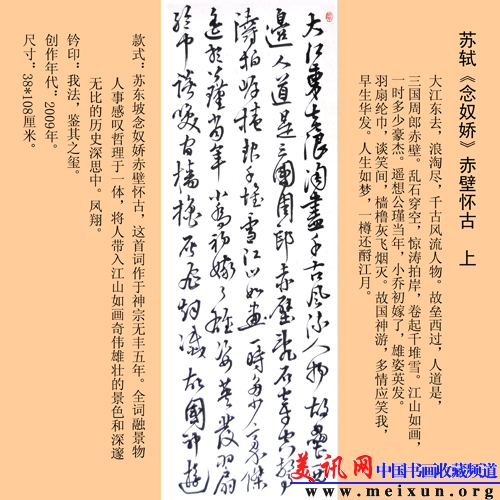 苏轼《念奴娇》赤壁怀古　上
大江东去，浪淘尽，千古风流人物。故垒西过，人道是，
三国周郎赤壁。乱石穿空，惊涛拍岸，卷起千堆雪。江山如画，
一时多少豪杰。遥想公瑾当年，小乔初嫁了，雄姿英发。
羽扇纶巾，谈笑间，樯橹灰飞烟灭。故国神游，多情应笑我，
早生华发。人生如梦，一樽还酹江月。
大江东去浪淘尽千古风流人物故垒西
边人道是三国周郎赤壁乱石穿空惊
涛拍岸卷起千堆雪江山如画一时多少豪杰
遥想公瑾当年小乔初嫁了雄姿英发羽扇
纶巾谈笑间樯橹灰飞烟灭故国神游
款式：苏东坡念奴娇赤壁怀古，这首词作于神宗无丰五年。全词融景物
人事感叹哲理于一体，将人带入江山如画奇伟雄壮的景色和深邃
无比的历史深思中。凤翔。
钤印：我法，鉴其之玺。
创作年代：2009年。
尺寸：38*108厘米。
美讯网 中国书画收藏频道
www.meixun.org